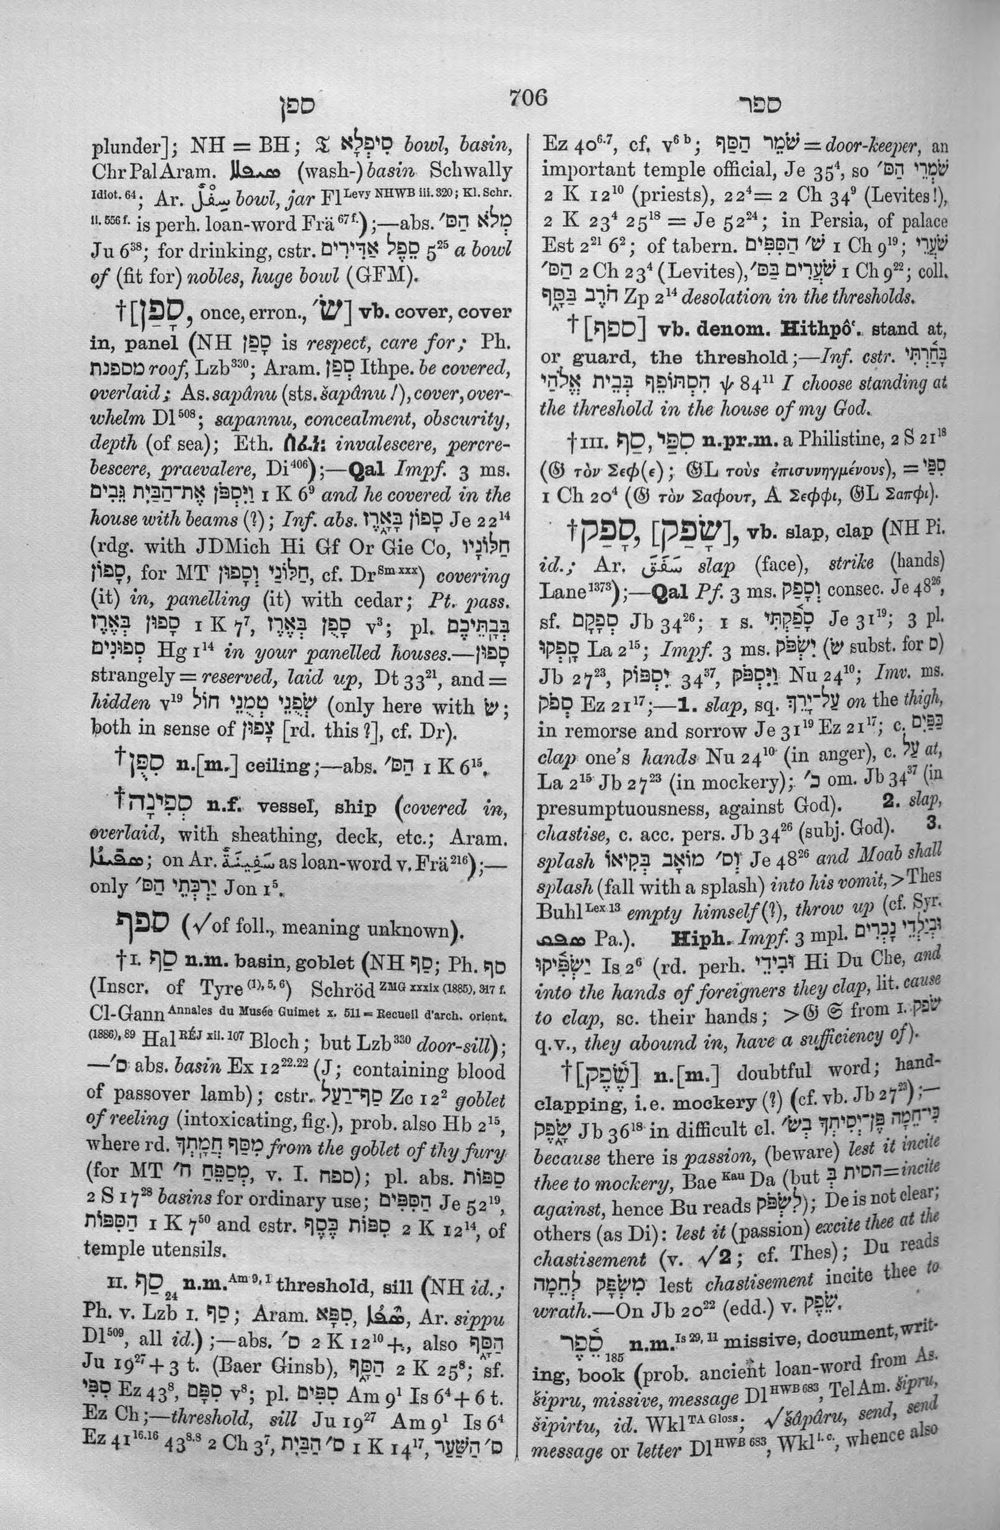 ספן
706
ספר
plunder]; NH = BH; 𝔗 סִיפְלָא bowl, basin,
ChrPalAram. ܣܦܠܐ (wash-)basin Schwally
Idiot. 64; Ar. سِفْلٌ bowl, jar Fl Levy NHWB iii. 320; Kl. Schr.
ii. 556 f. is perh. loan-word Frä 67 f.);—abs. מְלֹא הַסּ׳
Ju 6³⁸; for drinking, cstr. סֵפֶל אַדִּירִים 5²⁵ a bowl
of (fit for) nobles, huge bowl (GFM).
†[סָפַן, once, erron., שׂ׳] vb. cover, cover
in, panel (NH סָפַן is respect, care for; Ph.
מספנת roof, Lzb³³⁰; Aram. סְפַן Ithpe. be covered,
overlaid; As. sapânu (sts. šapânu !), cover, over-
whelm Dl⁵⁰⁸; sapannu, concealment, obscurity,
depth (of sea); Eth. invalescere, percre-
bescere, praevalere, Di⁴⁰⁶);—Qal Impf. 3 ms.
וַיִּסְפֹּן אֶת־הַבַּיִת גֵּבִים 1 K 6⁹ and he covered in the
house with beams (?); Inf. abs. סָפוֹן בָּאָרֶז Je 22¹⁴
(rdg. with JDMich Hi Gf Or Gie Co, חַלּוֹנָיו
סָפוֹן, for MT חַלּוֹנָי וְסָפוּן, cf. Dr Sm xxx) covering
(it) in, panelling (it) with cedar; Pt. pass.
סָפוּן בָּאָרֶז 1 K 7⁷, סָפֻן בָּאָרֶז v³; pl. בְּבָתֵּיכֶם
סְפוּנִים Hg 1¹⁴ in your panelled houses.—סָפוּן
strangely = reserved, laid up, Dt 33²¹, and =
hidden v¹⁹ שְׂפֻנֵי טְמֻנֵי חוֹל (only here with שׂ;
both in sense of צָפוּן [rd. this ?], cf. Dr).
†סִפֻּן n.[m.] ceiling;—abs. הַסּ׳ 1 K 6¹⁵.
†סְפִינָה n.f. vessel, ship (covered in,
overlaid, with sheathing, deck, etc.; Aram.
ܣܦܝܢܬܐ; on Ar. سَفِينَةٌ as loan-word v. Frä²¹⁶);—
only יַרְכְּתֵי הַסּ׳ Jon 1⁵.
ספף (√of foll., meaning unknown).
†I. סַף n.m. basin, goblet (NH סַף; Ph. סף
(Inscr. of Tyre (1), 5, 6) Schröd ZMG xxxix (1885), 317 f.
Cl-Gann Annales du Musée Guimet x. 511 = Recueil d'arch. orient.
(1886), 89 Hal RÉJ xii. 107 Bloch; but Lzb³³⁰ door-sill);
—ס׳ abs. basin Ex 12²²·²² (J; containing blood
of passover lamb); cstr. סַף־רַעַל Zc 12² goblet
of reeling (intoxicating, fig.), prob. also Hb 2¹⁵,
where rd. מִסַּף חֲמָתְךָ from the goblet of thy fury
(for MT מְסַפֵּחַ ח׳, v. I. ספח); pl. abs. סַפּוֹת
2 S 17²⁸ basins for ordinary use; הַסִּפִּים Je 52¹⁹,
הַסִּפּוֹת 1 K 7⁵⁰ and cstr. סִפּוֹת כֶּסֶף 2 K 12¹⁴, of
temple utensils.
II. סַף 24 n.m. Am 9, 1 threshold, sill (NH id.;
Ph. v. Lzb I. סף; Aram. סִפָּא, ܣܦܐ, Ar. sippu
Dl⁵⁰⁹, all id.);—abs. ס׳ 2 K 12¹⁰+, also הַסַּף
Ju 19²⁷ + 3 t. (Baer Ginsb), הַסַּף 2 K 25⁸; sf.
סִפִּי Ez 43⁸, סִפָּם v⁸; pl. סִפִּים Am 9¹ Is 6⁴ + 6 t.
Ez Ch;—threshold, sill Ju 19²⁷ Am 9¹ Is 6⁴
Ez 41¹⁶·¹⁶ 43⁸·⁸ 2 Ch 3⁷, ס׳ הַבַּיִת 1 K 14¹⁷, ס׳ הַשַּׁעַר
Ez 40⁶·⁷, cf. v⁶ᵇ; שֹׁמֵר הַסַּף = door-keeper, an
important temple official, Je 35⁴, so שֹׁמְרֵי הַסּ׳
2 K 12¹⁰ (priests), 22⁴ = 2 Ch 34⁹ (Levites!),
2 K 23⁴ 25¹⁸ = Je 52²⁴; in Persia, of palace
Est 2²¹ 6²; of tabern. שׁ׳ הַסִּפִּים 1 Ch 9¹⁹; שֹׁעֲרֵי
הַסּ׳ 2 Ch 23⁴ (Levites), שֹׁעֲרִים בַּסּ׳ 1 Ch 9²²; coll.
חֹרֶב בַּסַּף Zp 2¹⁴ desolation in the thresholds.
†[ספף] vb. denom. Hithpô‘. stand at,
or guard, the threshold;—Inf. cstr. בָּחַרְתִּי
הִסְתּוֹפֵף בְּבֵית אֱלֹהַי ψ 84¹¹ I choose standing at
the threshold in the house of my God.
†III. סַף, סִפַּי n.pr.m. a Philistine, 2 S 21¹⁸
(𝔊 τὸν Σεφ(ε); 𝔊L τοὺς ἐπισυνηγμένους), = סִפַּי
1 Ch 20⁴ (𝔊 τὸν Σαφουτ, A Σεφφι, 𝔊L Σαπφι).
†סָפַק, [שָׂפַק], vb. slap, clap (NH Pi.
id.; Ar. سَفَقَ slap (face), strike (hands)
Lane¹³⁷³);—Qal Pf. 3 ms. וְסָפַק consec. Je 48²⁶,
sf. סְפָקָם Jb 34²⁶; 1 s. סָפַקְתִּי Je 31¹⁹; 3 pl.
סָפְקוּ La 2¹⁵; Impf. 3 ms. יִשְׂפֹּק (שׂ subst. for ס)
Jb 27²³, יִסְפּוֹק 34³⁷, וַיִּסְפֹּק Nu 24¹⁰; Imv. ms.
סְפֹק Ez 21¹⁷;—1. slap, sq. עַל־יָרֵךְ on the thigh,
in remorse and sorrow Je 31¹⁹ Ez 21¹⁷; c. כַּפַּיִם
clap one's hands Nu 24¹⁰ (in anger), c. עַל at,
La 2¹⁵ Jb 27²³ (in mockery); כ׳ om. Jb 34³⁷ (in
presumptuousness, against God). 2. slap,
chastise, c. acc. pers. Jb 34²⁶ (subj. God). 3.
splash וְס׳ מוֹאָב בְּקִיאוֹ Je 48²⁶ and Moab shall
splash (fall with a splash) into his vomit, > Thes
Buhl Lex 13 empty himself (?), throw up (cf. Syr.
ܣܦܩ Pa.). Hiph. Impf. 3 mpl. וּבְיַלְדֵי נָכְרִים
יַשְׂפִּיקוּ Is 2⁶ (rd. perh. וּבִידֵי Hi Du Che, and
into the hands of foreigners they clap, lit. cause
to clap, sc. their hands; > 𝔊 𝔖 from I. שׂפק
q.v., they abound in, have a sufficiency of).
†[שֶׂפֶק] n.[m.] doubtful word; hand-
clapping, i.e. mockery (?) (cf. vb. Jb 27²³);—
שָׂפֶק Jb 36¹⁸ in difficult cl. כִּי־חֵמָה פֶּן־יְסִיתְךָ בְשׂ׳
because there is passion, (beware) lest it incite
thee to mockery, Bae Kau Da (but הסית בְּ = incite
against, hence Bu reads לִשְׂפֹּק ?); De is not clear;
others (as Di): lest it (passion) excite thee at the
chastisement (v. √2; cf. Thes); Du reads
לְחֵמָה מִשְׂפָּק lest chastisement incite thee to
wrath.—On Jb 20²² (edd.) v. שֶׂפֶק.
סֵפֶר 185 n.m. Is 29, 11 missive, document, writ-
ing, book (prob. ancient loan-word from As.
šipru, missive, message Dl HWB 683, Tel Am. šipru,
šipirtu, id. Wkl TA Gloss; √šâpâru, send, send
message or letter Dl HWB 683, Wkl l. c., whence also